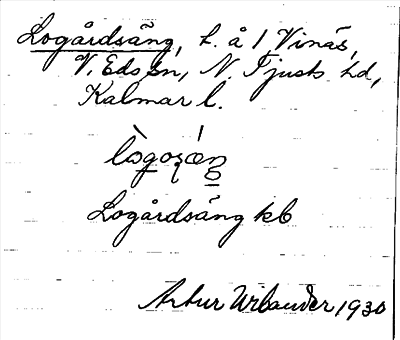 Logårdsäng, l. å 1 Vinäs,
V. Eds sn, N. Tjusts hd,
Kalmar l.
Logårdsäng kb
Artur Urbander 1930